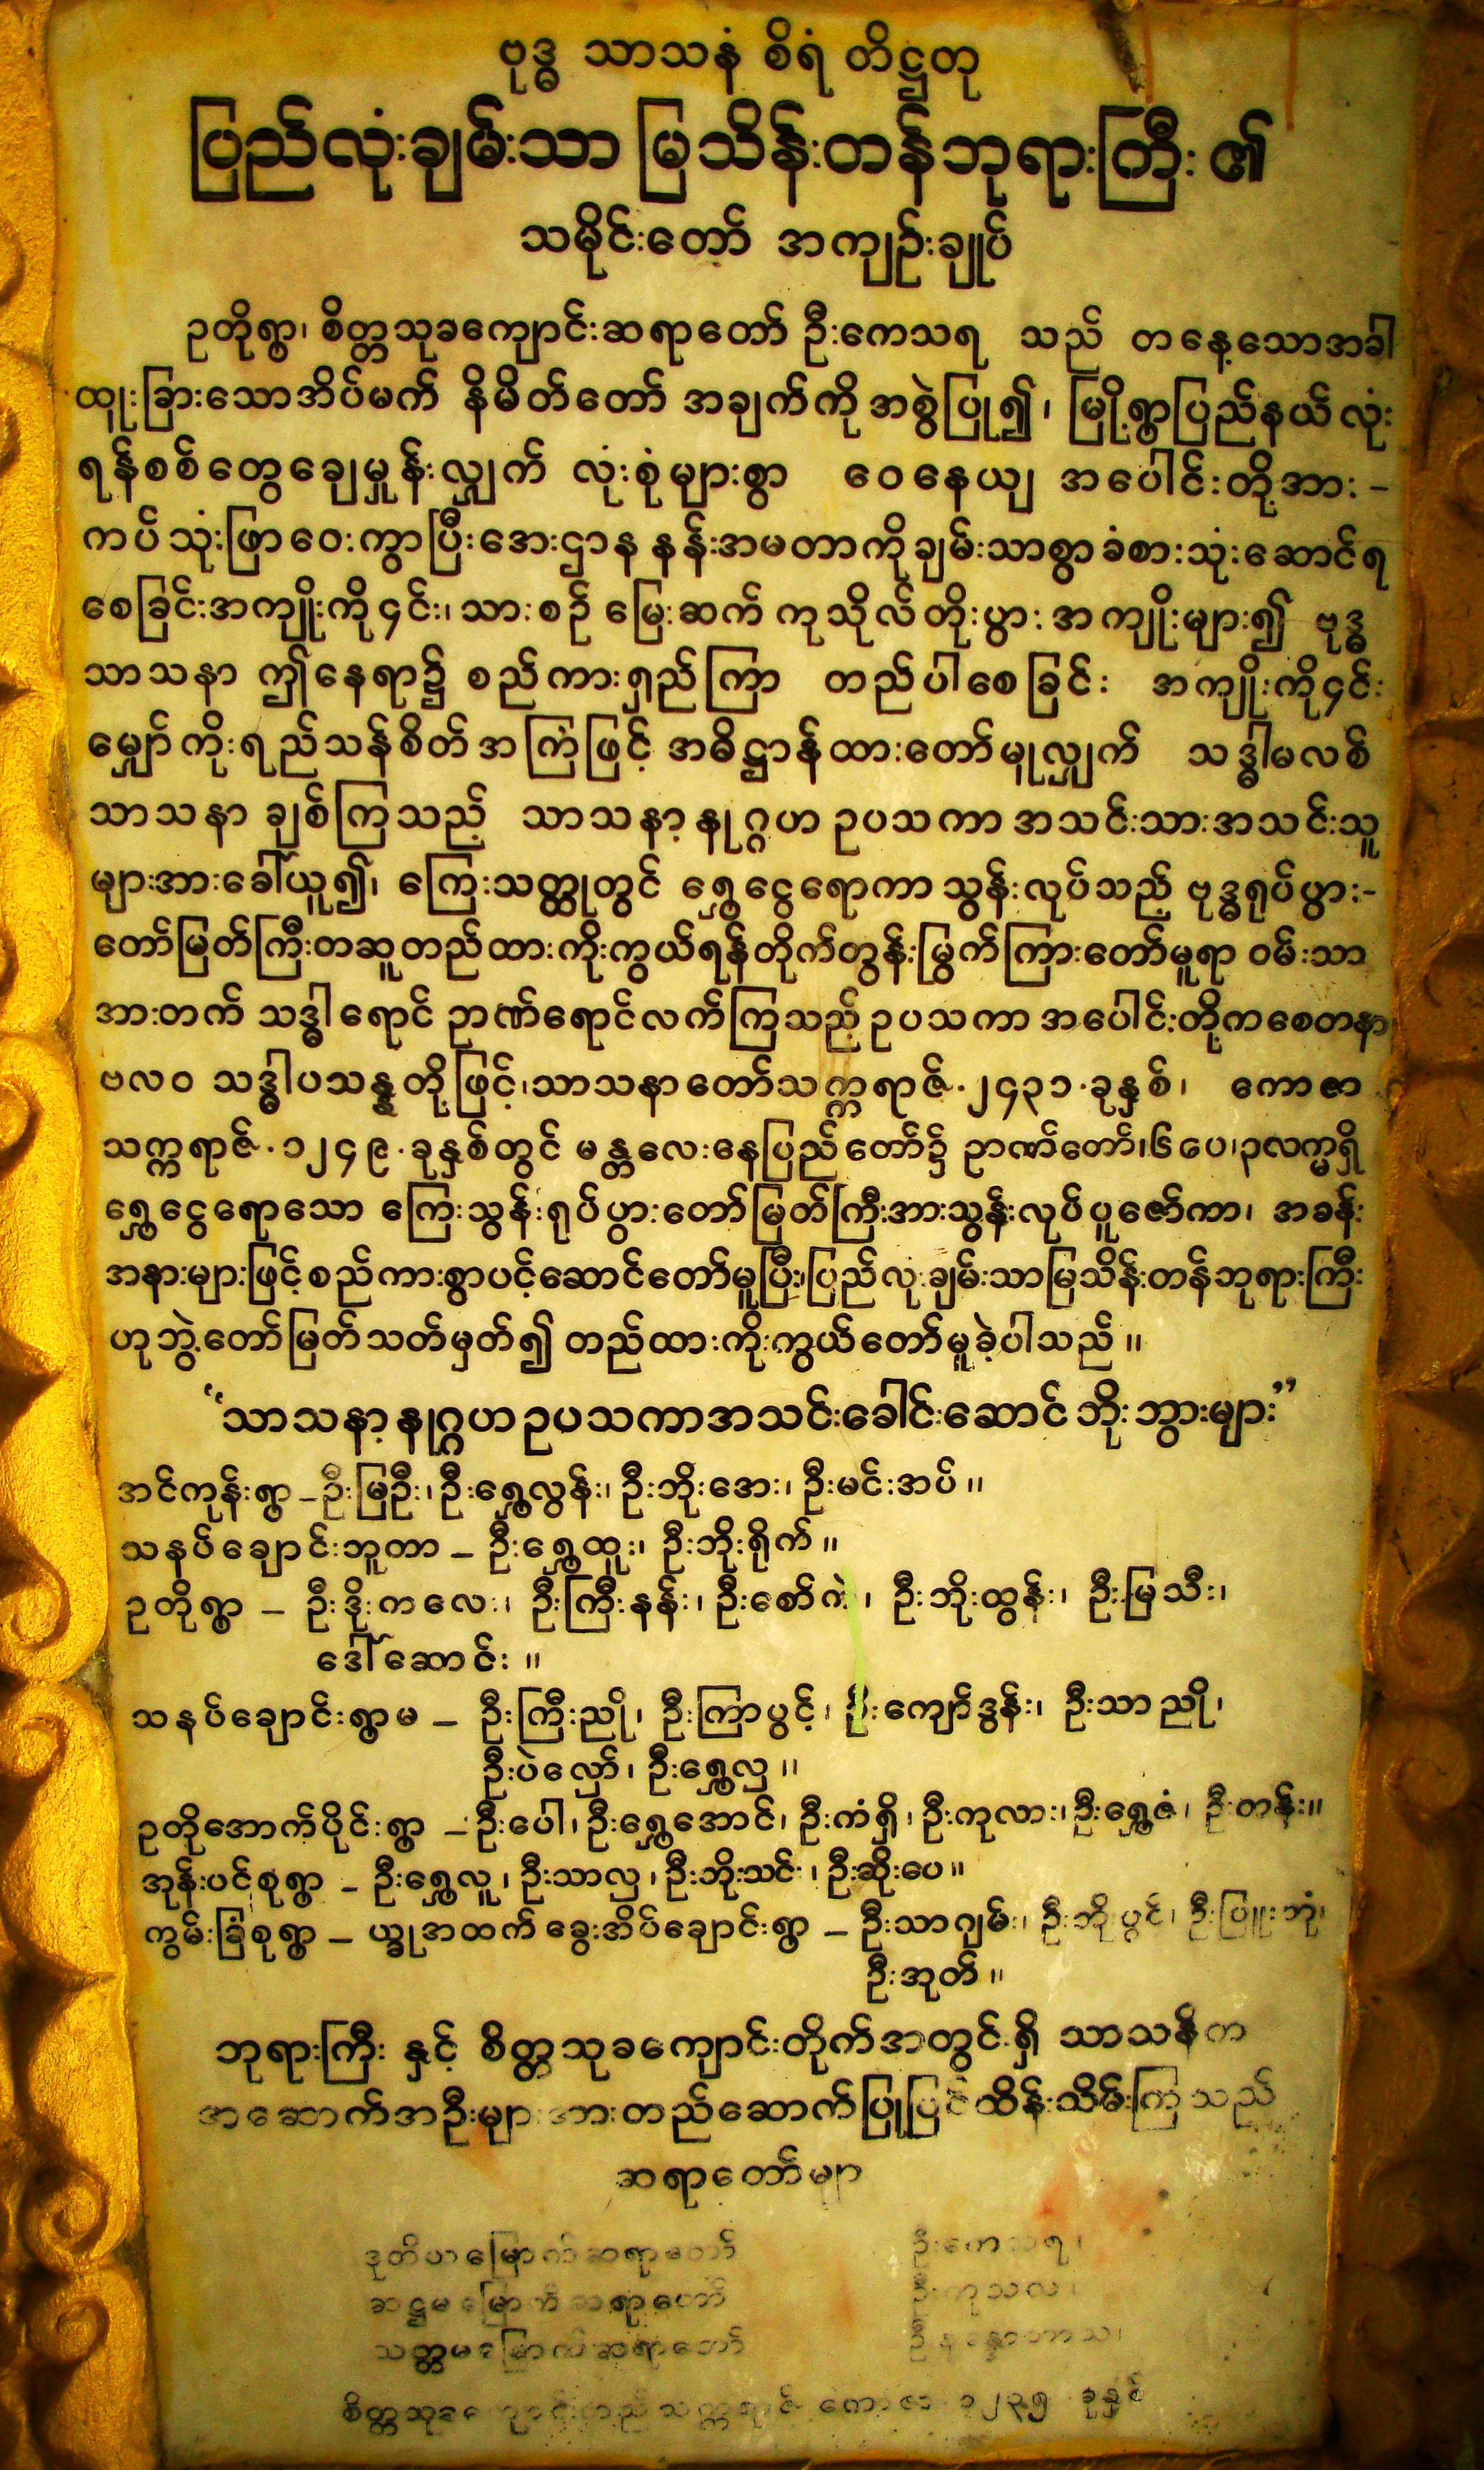 ဗုဒ္ဓ သာသနံ စိရံ တိဋ္ဌတု
ပြည်လုံးချမ်းသာ မြသိန်းတန်ဘုရားကြီး ၏
သမိုင်းတော် အကျဉ်းချုပ်
ဥတိုရွာ၊ စိတ္တသုခကျောင်းဆရာတော် ဦးကေသရ သည် တနေ့သောအခါ
ထူးခြားသောအိပ်မက် နိမိတ်တော် အချက်ကို အစွဲပြု၍၊ မြို့ရွာပြည်နယ်လုံး
ရန်စစ်တွေချေမှုန်းလျှက် လုံးစုံများစွာ ဝေနေယျ အပေါင်းတို့အား -
ကပ်သုံးဖြာဝေးကွာပြီးအေးဌာန နန်းအမတာကိုချမ်းသာစွာခံစားသုံးဆောင်ရ
စေခြင်းအကျိုးကို၎င်း၊သားစဉ် မြေးဆက် ကုသိုလ်တိုးပွား အကျိုးများ၍ ဗုဒ္ဓ
သာသနာ ဤနေရာ၌ စည်ကားရှည်ကြာ တည်ပါစေခြင်း အကျိုးကို၎င်း
မျှော်ကိုးရည်သန်စိတ်အကြံဖြင့် အဓိဋ္ဌာန်ထားတော်မူလျှက် သဒ္ဓါမလစ်
သာသနာ ချစ်ကြသည့် သာသနာ့နုဂ္ဂဟ ဥပသကာ အသင်းသားအသင်းသူ
များအားခေါ်ယူ၍၊ ကြေးသတ္ထုတွင် ရွှေငွေရောကာသွန်းလုပ်သည့် ဗုဒ္ဓရုပ်ပွား-
တော်မြတ်ကြီးတဆူတည်ထားကိုးကွယ်ရန်တိုက်တွန်းမြွက်ကြားတော်မူရာ ဝမ်းသာ
အားတက် သဒ္ဓါရောင် ဉာဏ်ရောင်လက်ကြသည့်ဥပသကာ အပေါင်းတို့ကစေတနာ
ဗလဝ သဒ္ဓါပသန္နတို့ဖြင့်၊သာသနာတော်သက္ကရာဇ်.၂၄၃၁.ခုနှစ်၊ ကောဇာ
သက္ကရာဇ်.၁၂၄၉.ခုနှစ်တွင် မန္တလေးနေပြည်တော်၌ ဉာဏ်တော်၊၆ပေ၊၃လက္မရှိ
ရွှေငွေရောသော ကြေးသွန်းရုပ်ပွားတော်မြတ်ကြီးအားသွန်းလုပ်ပူဇော်ကာ၊ အခန်း
အနားများဖြင့်စည်ကားစွာပင့်ဆောင်တော်မူပြီး၊ပြည်လုံးချမ်းသာမြသိန်းတန်ဘုရားကြီး
ဟုဘွဲ့တော်မြတ်သတ်မှတ်၍ တည်ထားကိုးကွယ်တော်မူခဲ့ပါသည်။
“သာသနာ့နုဂ္ဂဟဥပသကာအသင်းခေါင်းဆောင်ဘိုးဘွားများ”
အင်ကုန်းရွာ -ဦးမြဦး၊ဦးရွှေလွန်း၊ ဦးဘိုးအေး၊ ဦးမင်းအပ်။
သနပ်ချောင်းဘူတာ - ဦးရွှေထူး၊ ဦးဘိုးရိုက်။
ဥတိုရွာ - ဦးဒိုးကလေး၊ ဦးကြီးနန်း၊ ဦးစော်ကဲ၊ ဦးဘိုးထွန်း၊ ဦးမြသီး၊
ဒေါ်ဆောင်း။
သနပ်ချောင်းရွာမ - ဦးကြီးညို၊ ဦးကြာပွင့်၊ ဦးကျော်ဒွန်း၊ ဦးသာညို၊
ဦးပဲလှော်၊ ဦးရွှေလှ။
ဥတိုအောက်ပိုင်းရွာ -ဦးပေါ၊ ဦးရွှေအောင်၊ ဦးကံရှိ၊ ဦးကုလား၊ ဦးရွှေဇံ၊ ဦးတန်း။
အုန်းပင်စုရွာ - ဦးရွှေလူ၊ ဦးသာလှ၊ ဦးဘိုးသင်း၊ ဦးဆိုးပေ။
ကွမ်းခြံစုရွာ - ယ္ခုအထက်ခွေးအိပ်ချောင်းရွာ - ဦးသာဂျမ်း၊ ဦးဘိုးပွင့်၊ ဦးပြူးဘုံ၊
ဦးအုတ်။
ဘုရားကြီး နှင့် စိတ္တသုခကျောင်းတိုက်အတွင်းရှိ သာသနိက
အဆောက်အဦးများအားတည်ဆောက်ပြုပြင်ထိန်းသိမ်းကြသည့်
ဆရာတော်များ
ဒုတိယမြောက်ဆရာတော် ဦးကေသရ၊
ဆဋ္ဌမမြောက်ဆရာတော် ဦးကုသလ၊
သတ္တမမြောက်ဆရာတော်
စိတ္တသုခကျောင်းတည်သက္ကရာဇ် ကောဇာ ၁၂၃၅ ခုနှစ်